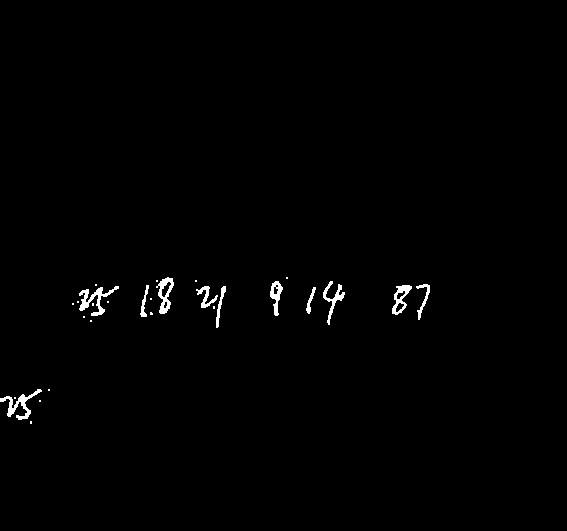 25 18 21 9 14 87
25